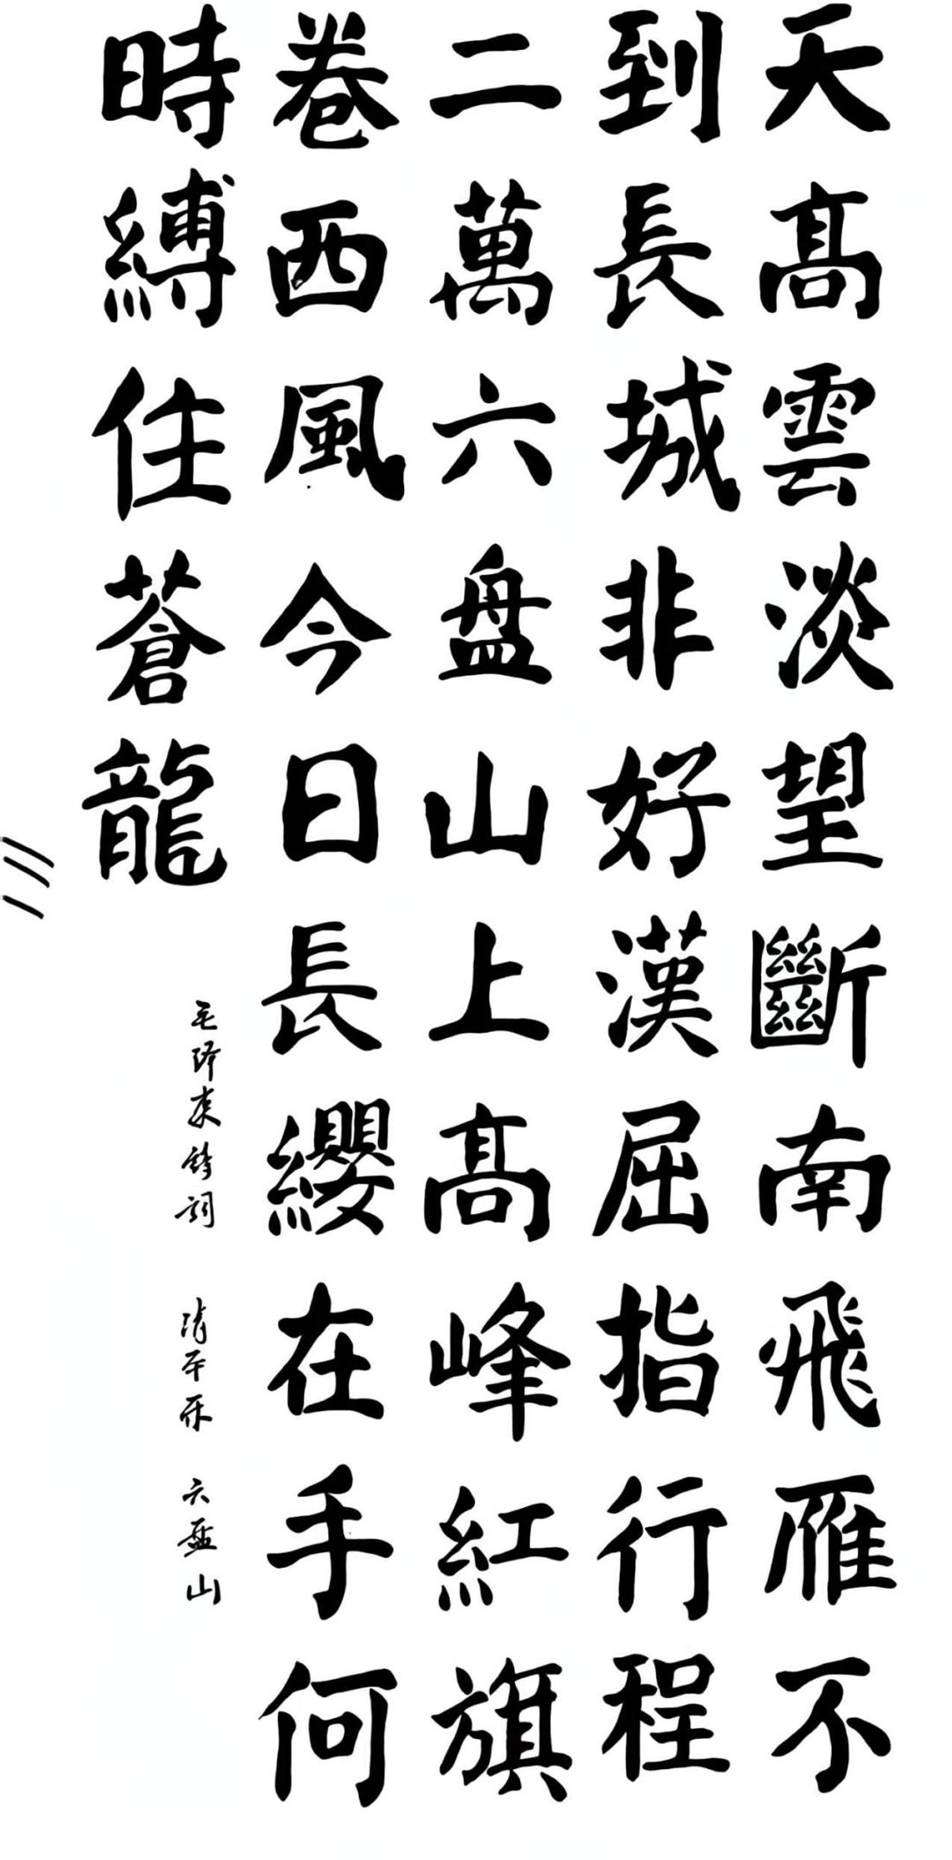 天高雲淡望斷南飛雁不
到長城非好漢屈指行程
二萬六盤山上高峰紅旗
卷西風今日長纓在手何
時縛住蒼龍
毛泽东诗词 清平乐 六盘山